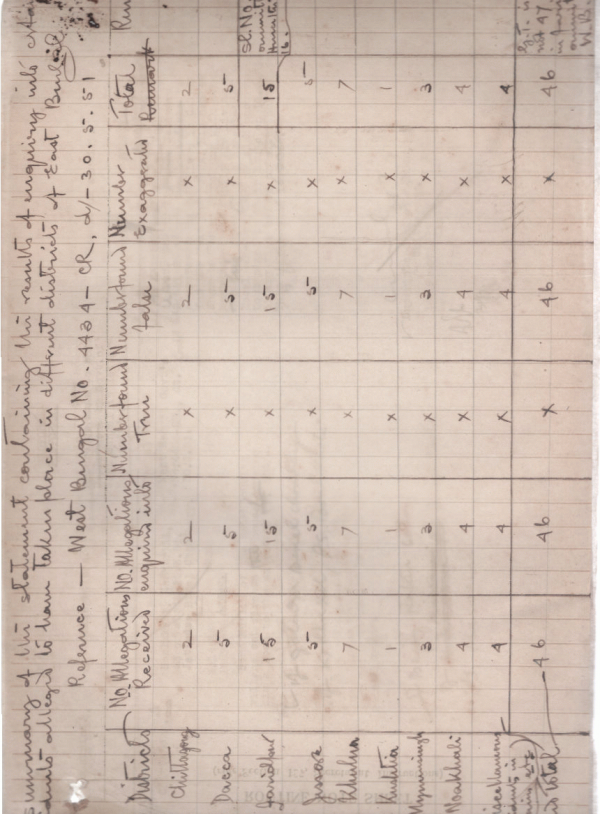 Summary of the statement containing the results of enquiry into certain
incidents alleged to have taken place in different districts of East Bengal
Reference — West Bengal No. 4434 - CR, d/- 30.5.51
Districts No. Allegations Received No. Allegations enquired into Number found True Number found false Number Exaggerated Total Remark
Chittagong 2 2 x 2 x 2
Dacca 5 5 x 5 x 5
Faridpur 15 15 x 15 x 15 Sl. No.
Jessore 5 5 x 5 x 5 16.
Khulna 7 7 x 7 x 7
Kushtia 1 1 x 1 x 1
Mymensingh 3 3 x 3 x 3
Noakhali 4 4 x 4 x 4
Miscellaneous 4 4 x 4 x 4
Total 46 46 x 46 x 46 not 47
W.B.